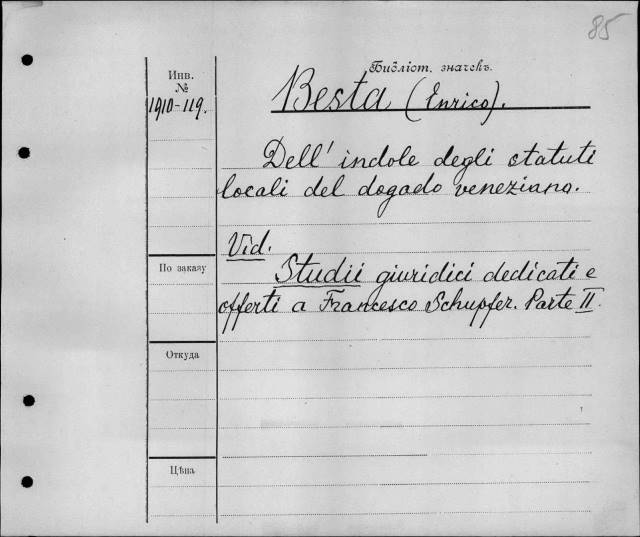 85
Библіот. значекъ.
Инв.
№
1910-119.
Besta (Enrico).
Dell' indole degli statuti
locali del dogado veneziano.
Vid.
Studii giuridici dedicati e
offerti a Francesco Schupfer. Parte II.
По заказу
Откуда
Цѣна